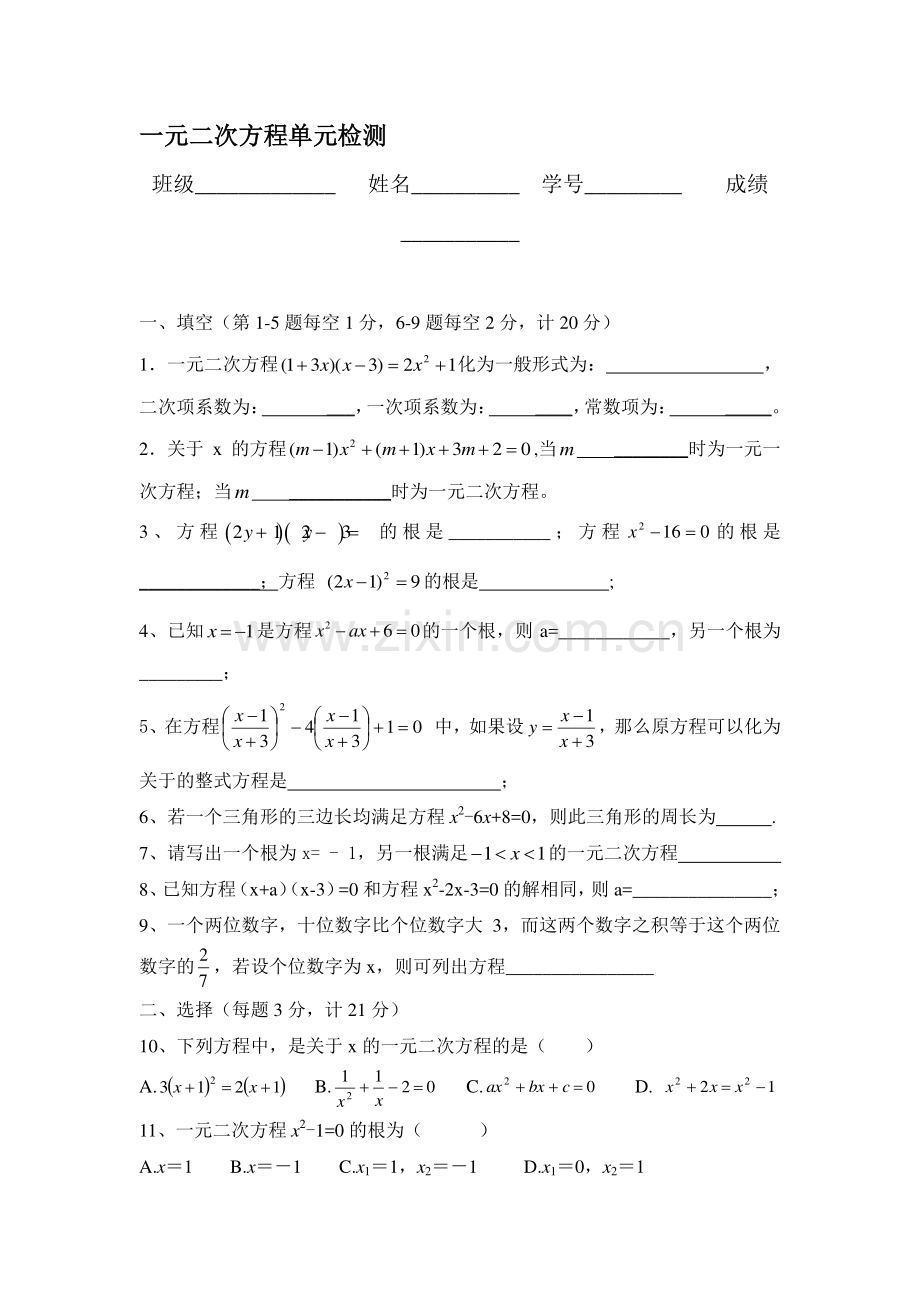 一元二次方程单元检测
班级_____________ 姓名__________ 学号_________ 成绩
___________
一、填空（第 1-5 题每空 1 分，6-9 题每空 2 分，计 20 分）
1．一元二次方程(1+3x)(x−3)=2x²+1化为一般形式为：______________，
二次项系数为：________，一次项系数为：________，常数项为：_________。
2．关于 x 的方程(m−1)x²+(m+1)x+3m+2=0,当m __________时为一元一
次方程；当m ____________时为一元二次方程。
3、方程(2y+1)(2y−3)= 的根是___________；方程x²−16=0的根是
_____________；方程 (2x−1)²=9的根是____________;
4、已知x=−1是方程x²−ax+6=0的一个根，则 a=____________，另一个根为
_________；
5、在方程((x−1)/(x+3))²−4((x−1)/(x+3))+1=0 中，如果设y=(x−1)/(x+3)，那么原方程可以化为
关于的整式方程是____________________；
6、若一个三角形的三边长均满足方程x²-6x+8=0，则此三角形的周长为______.
7、请写出一个根为x= - 1，另一根满足−1<x<1的一元二次方程__________
8、已知方程（x+a）（x-3）=0 和方程 x²-2x-3=0 的解相同，则 a=_______________；
9、一个两位数字，十位数字比个位数字大 3，而这两个数字之积等于这个两位
数字的2/7，若设个位数字为 x，则可列出方程________________
二、选择（每题 3 分，计 21 分）
10、下列方程中，是关于 x 的一元二次方程的是（ ）
A.3(x+1)²=2(x+1) B.1/x²+1/x−2=0 C.ax²+bx+c=0 D. x²+2x=x²−1
11、一元二次方程x²-1=0 的根为（ ）
A.x＝1 B.x＝－1 C.x₁＝1，x₂＝－1 D.x₁＝0，x₂＝1
www.zixin.com.cn